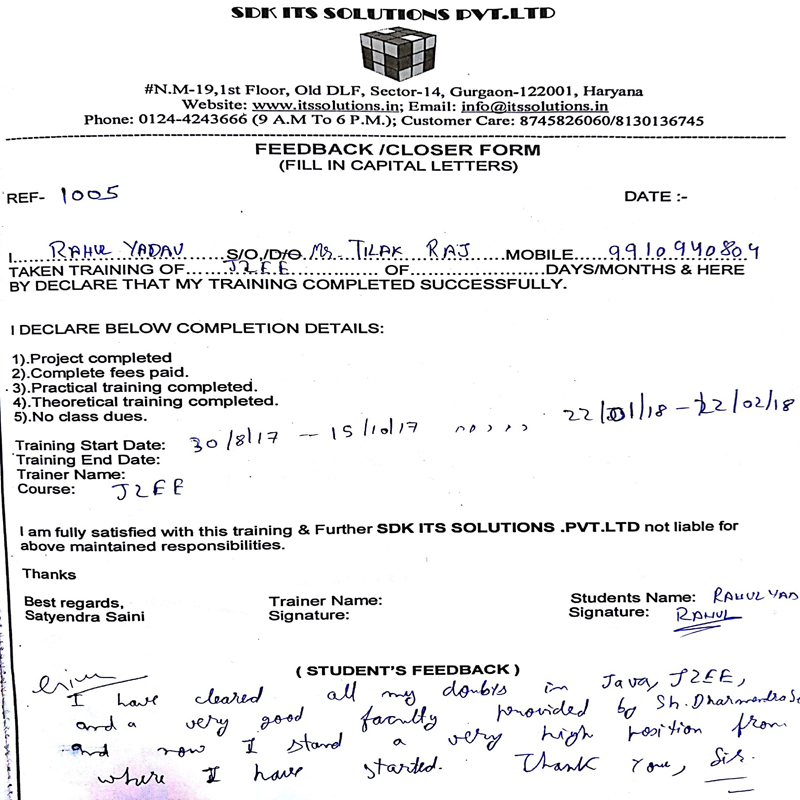 SDK ITS SOLUTIONS PVT.LTD
#N.M-19,1st Floor, Old DLF, Sector-14, Gurgaon-122001, Haryana
Website: www.itssolutions.in; Email: info@itssolutions.in
Phone: 0124-4243666 (9 A.M To 6 P.M.); Customer Care: 8745826060/8130136745
FEEDBACK /CLOSER FORM
(FILL IN CAPITAL LETTERS)
REF- 1005 DATE :-
I....RAHUL YADAV......S/O,/D/O Mr. TILAK RAJ......MOBILE...9910940804
TAKEN TRAINING OF......J2EE................ OF.......................DAYS/MONTHS & HERE
BY DECLARE THAT MY TRAINING COMPLETED SUCCESSFULLY.
I DECLARE BELOW COMPLETION DETAILS:
1).Project completed
2).Complete fees paid.
3).Practical training completed.
4).Theoretical training completed.
5).No class dues.
Training Start Date: 30/8/17 - 15/10/17 ,, , , , 22/01/18 - 22/02/18
Training End Date:
Trainer Name:
Course: J2EE
I am fully satisfied with this training & Further SDK ITS SOLUTIONS .PVT.LTD not liable for
above maintained responsibilities.
Thanks
Best regards, Trainer Name: Students Name: RAHUL YAD
Satyendra Saini Signature: Signature: RAHUL
( STUDENT'S FEEDBACK )
I have cleared all my doubts in Java, J2EE,
and a very good faculty provided by Sh. Dharmendra Sa
and now I stand a very high position from
where I have started. Thank You, Sir.